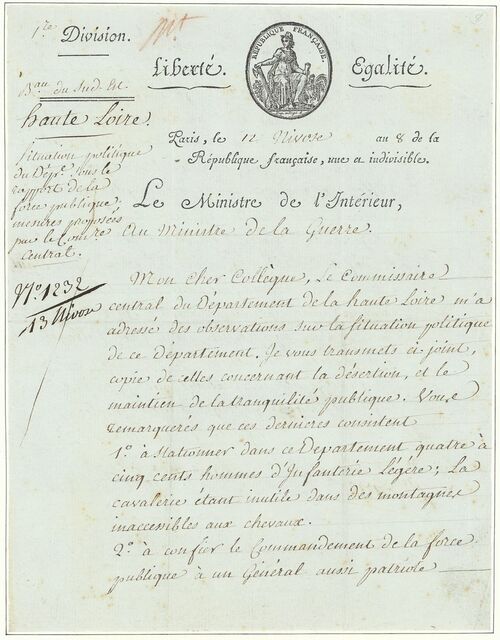 1re Division.
Bau du Sud Est.
haute Loire.
Situation politique
du Dépt. sous le
rapport de la
force publique;
mesures proposées
par le Comre
central.
N.o 1232
13 Nivose
8
RÉPUBLIQUE FRANÇAISE.
Liberté. Egalité.
Paris, le 12 Nivose an 8 de la
République française, une et indivisible.
Le Ministre de l'Intérieur,
Au Ministre de la Guerre.
Mon cher Collègue, Le Commissaire
central du Département de la haute Loire m'a
adressé des observations sur la situation politique
de ce département. Je vous transmets ci joint,
copie de celles concernant la désertion, et le
maintien de la tranquilité publique. Vous
remarquerés que ces dernieres consistent
1.o à stationner dans ce Département quatre à
cinq cents hommes d'Infanterie Légére; La
cavalerie étant inutile dans des montagnes
inaccessibles aux chevaux.
2.o à confier le Commandement de la force
publique à un Général aussi patriote